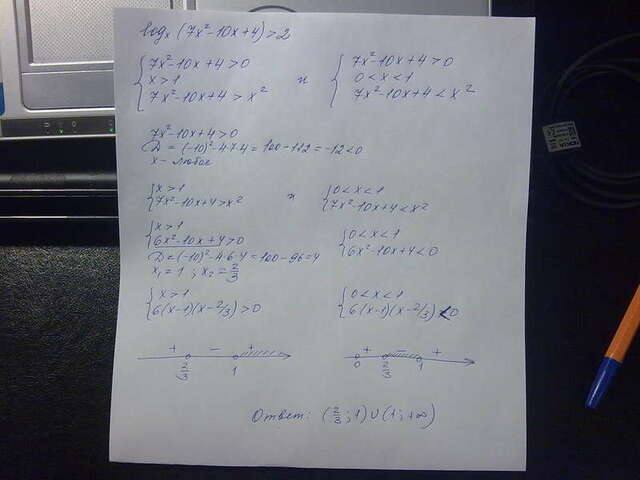 log_x (7x²-10x+4)>2
{7x²-10x+4>0 и {7x²-10x+4>0
x>1 0<x<1
7x²-10x+4>x² 7x²-10x+4<x²
7x²-10x+4>0
D=(-10)²-4·7·4=100-112=-12<0
x-любое
{x>1 и {0<x<1
7x²-10x+4>x² 7x²-10x+4<x²
{x>1 {0<x<1
6x²-10x+4>0 6x²-10x+4<0
D=(-10)²-4·6·4=100-96=4
x₁=1; x₂=2/3
{x>1 {0<x<1
6(x-1)(x-2/3)>0 6(x-1)(x-2/3)<0
+ - + + - +
2/3 1 0 2/3 1
Ответ: (2/3;1)∪(1;+∞)
NOKIA